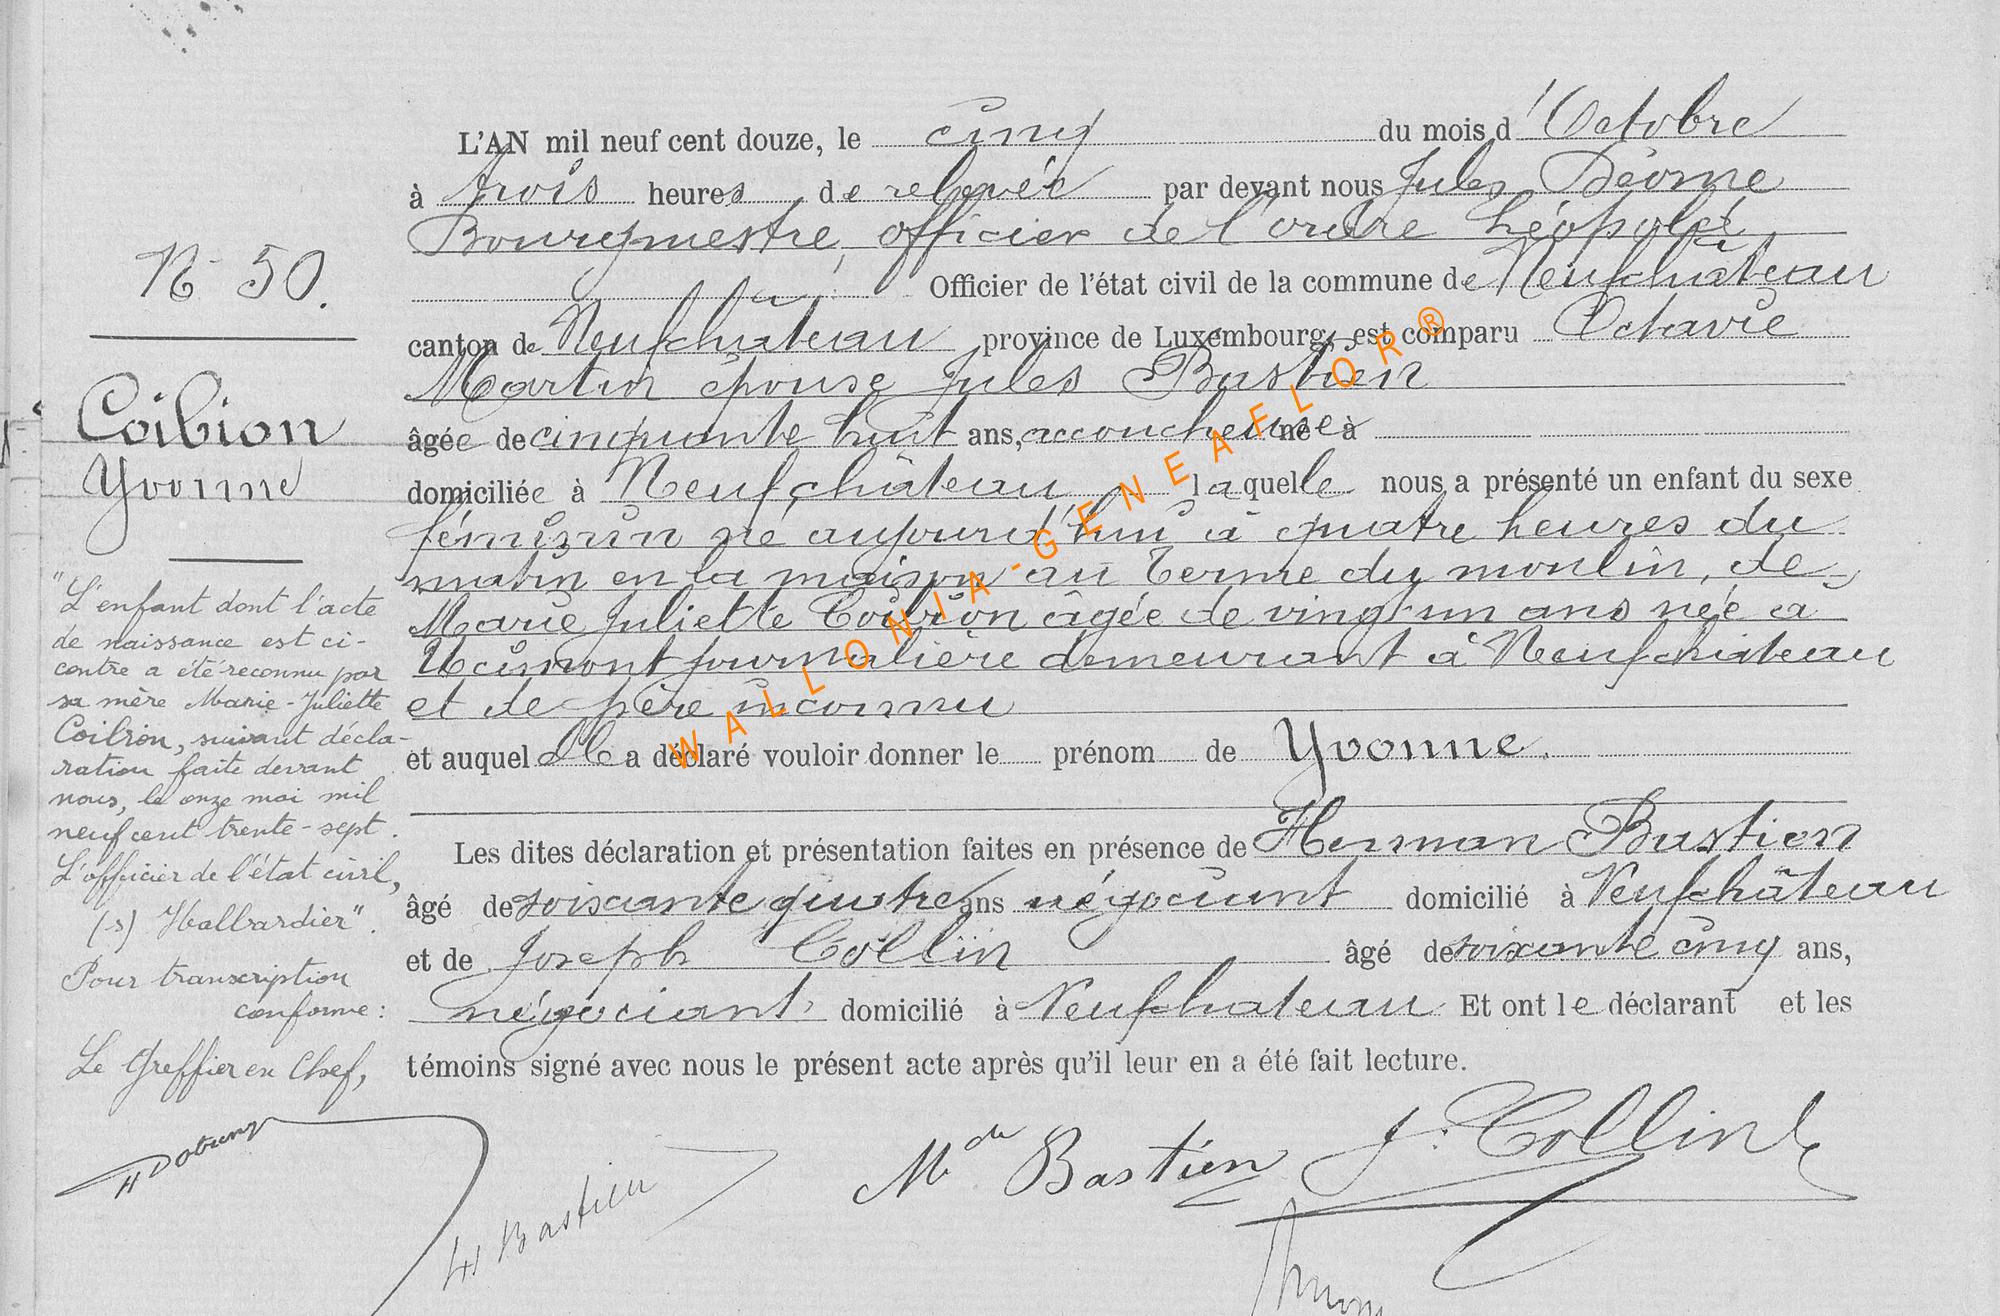 N° 50.
Coibion
Yvonne
"L'enfant dont l'acte
de naissance est ci-
contre a été reconnu par
sa mère Marie-Juliette
Coibion, suivant décla-
ration faite devant
nous, le onze mai mil
neuf cent trente-sept.
L'officier de l'état civil,
(s) Hallbardier".
Pour transcription
conforme:
Le Greffier en Chef,
L'AN mil neuf cent douze, le cinq du mois d'Octobre
à trois heures de relevée par devant nous Jules
Bourgmestre, officier de l'ordre Léopold
Officier de l'état civil de la commune de Neufchâteau
canton de Neufchâteau province de Luxembourg, est comparu Octavie
Martin épouse Jules Bastien
âgée de cinquante huit ans, accoucheuse né à
domiciliée à Neufchâteau laquelle nous a présenté un enfant du sexe
féminin né aujourd'hui à quatre heures du
matin en la maison au Terme du moulin, de
Marie Juliette Coibion âgée de vingt un ans née à
journalière demeurant à Neufchateau
et de père inconnu
et auquel elle a déclaré vouloir donner le prénom de Yvonne.
Les dites déclaration et présentation faites en présence de Herman Bastien
âgé de soixante quatre ans négociant domicilié à Neufchâteau
et de Joseph Collin âgé de soixante cinq ans,
négociant domicilié à Neufchateau Et ont le déclarant et les
témoins signé avec nous le présent acte après qu'il leur en a été fait lecture.
H Bastien
Mde Bastien
J. Collin
WALLONIA-GENEAFLOR®